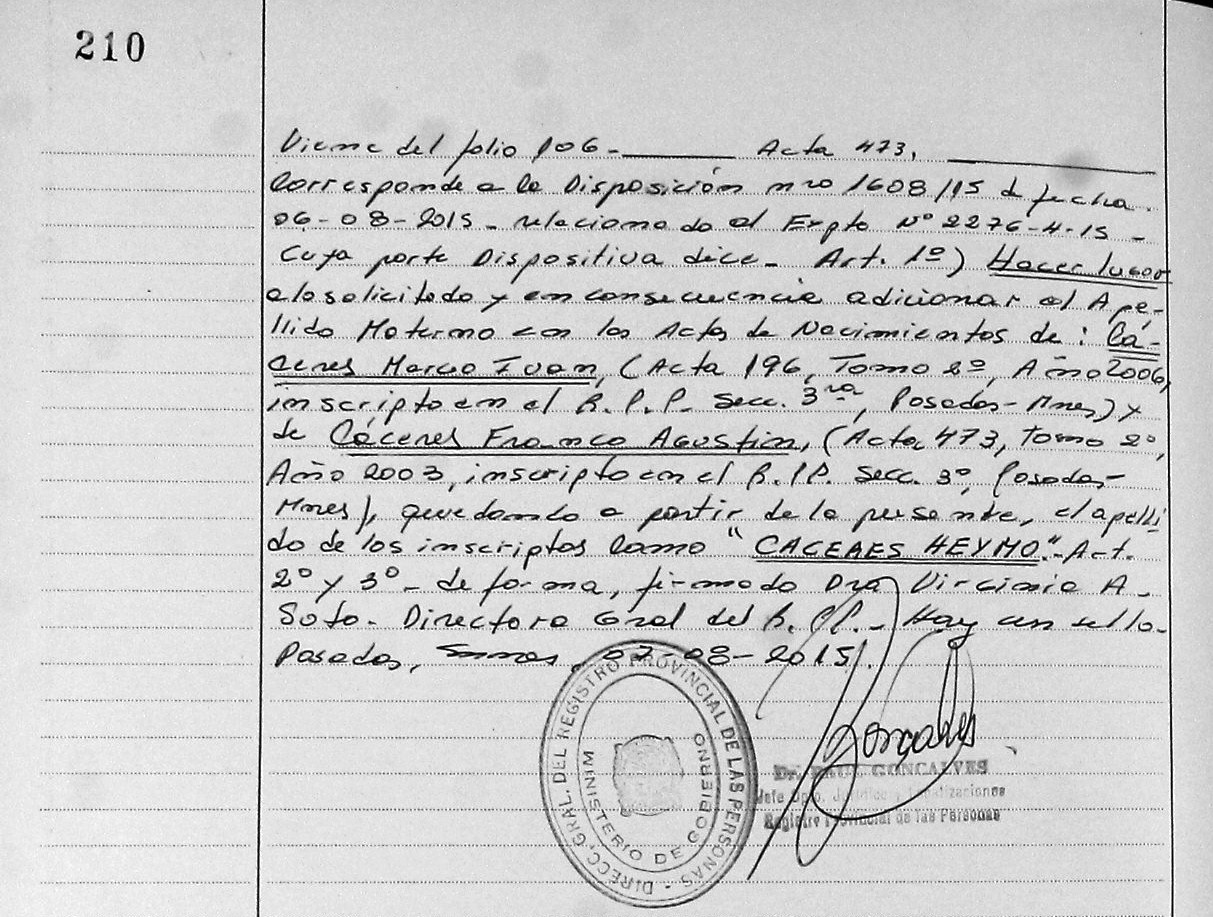 210
Viene del folio 106-______ Acta 473, ______
Corresponde a la Disposición nro 1608/15 d fecha.
06-08-2015 - relacionado al Expte Nº 2276-4-15 -
Cuya parte Dispositiva dice - Art. 1º) Hacer lugar
a lo solicitado y en consecuencia adicionar el Ape-
llido Materno en las Actas de Nacimientos de: Cá-
ceres Marco Ivan, (Acta 196, Tomo 2º, Año 2006,
inscripto en el R.P.P. Secc. 3ra, Posadas-Mnes) y
de Cáceres Franco Agustin, (Acta 473, Tomo 2º,
Año 2003, inscripto en el R.P.P. Secc. 3º, Posadas-
Mnes), quedando a partir de la presente, el apelli
do de los inscriptos como "CACERES HEYMO". Art.
2º y 3º - de forma, firmado Dra Virginia A.
Soto - Directora Gral del R.P.P. - Hay un sello -
Posadas, 07-08-2015/.
DIRECC. GRAL. DEL REGISTRO PROVINCIAL DE LAS PERSONAS -
MINISTERIO DE GOBIERNO
Goncalves
Dr. RAUL GONCALVES
Jefe Dpto. Jurídico y Legalizaciones
Registro Provincial de las Personas